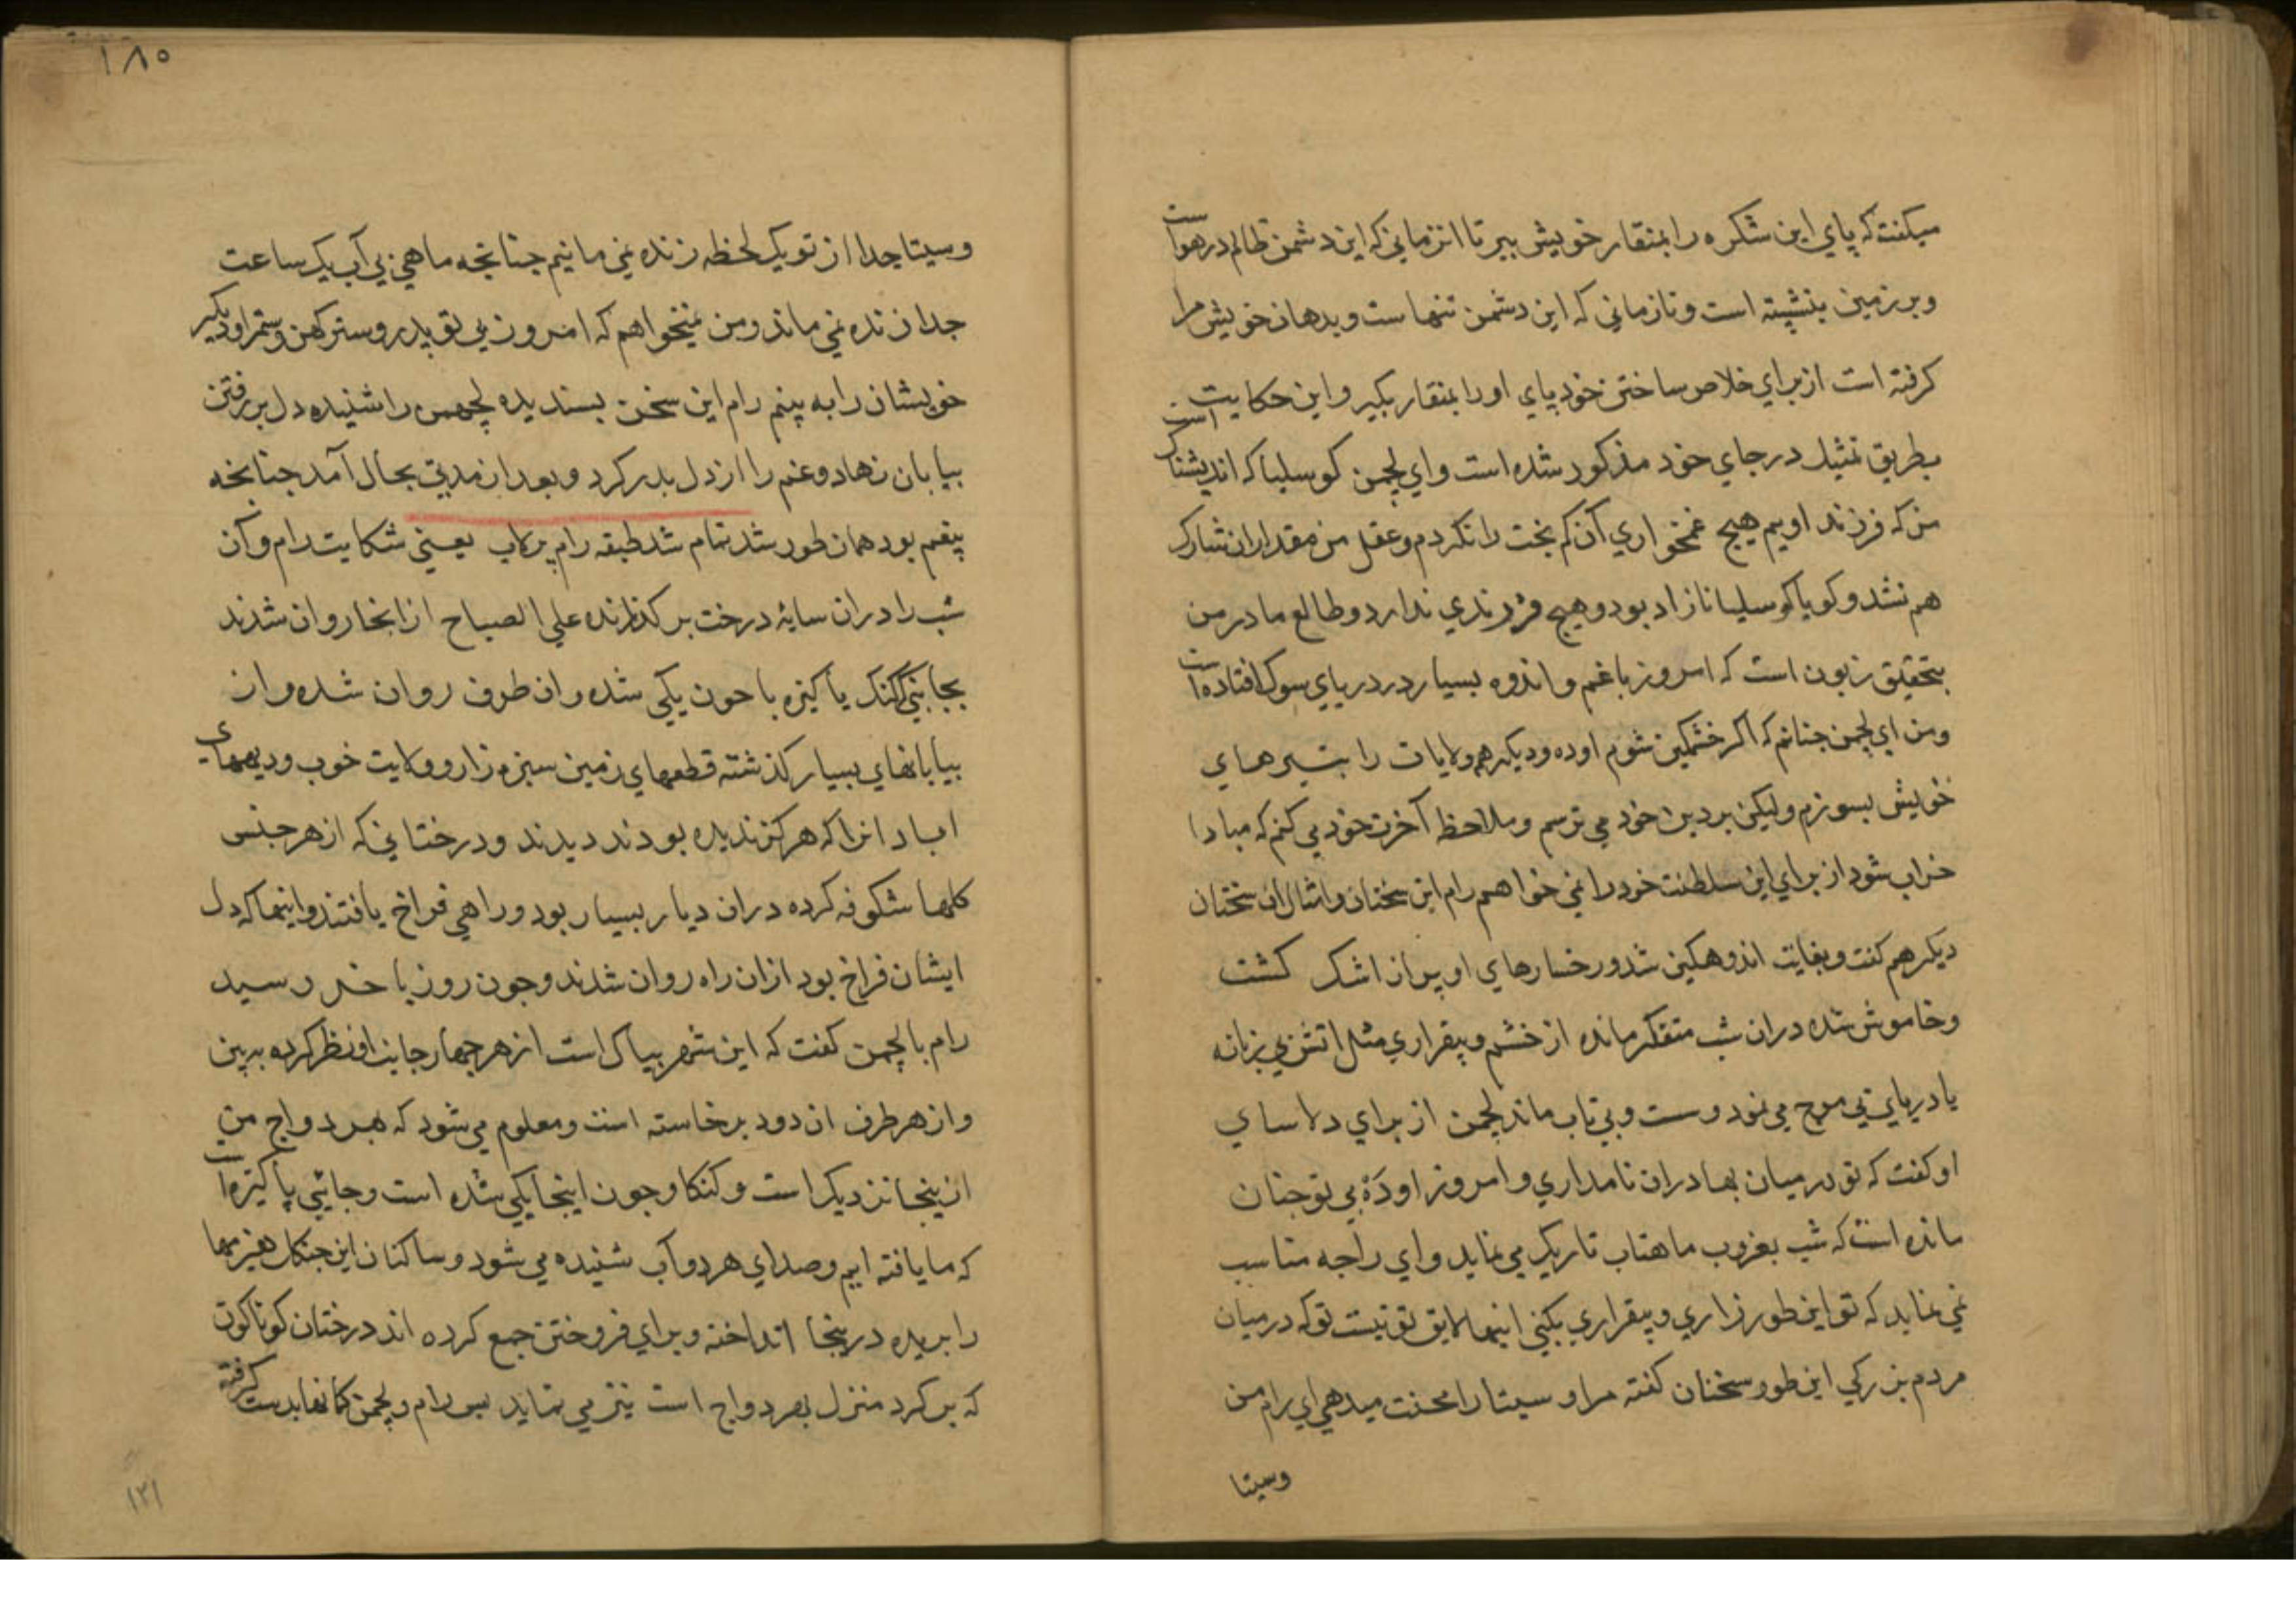 میکفت که پای این شکره را بمنقار خویش ببر تا انزمانی که این دشمن ظالم در هواست
و بر زمین بنشسته است و تا زمانی که این دشمن تنهاست و بدهان خویش مرا
کرفته است از برای خلاص ساختن خود پای او را بمنقار بکیر و این حکایت
بطریق تمثیل در جای خود مذکور شده است و ای لچمن کوسلیا که اندیشناک است
من که فرزند اویم هیچ غمخواری آن کم بخت را نکردم و عقل من مقدار ان شارک
هم نشد و کویا کوسلیا نازاد بود و هیچ فرزندی ندارد و طالع مادر من
بتحقیق زبون است که امروز با غم و اندوه بسیار در دریای سوک افتاده است
و من ای لچمن چنانم که اکر خشمکین شوم اوده و دیکر هم ولایات را بتیرهای
خویش بسوزم و لیکن بر دین خود می ترسم و ملاحظ آخرت خود می کنم که مبادا
خراب شود از برای این سلطنت خود را نمی خواهم رام این سخنان و امثال ان سخنان
دیکر هم کفت و بغایت اندوهکین شد و رخسارهای او پر از اشک کشت
و خاموش شده دران شب متفکر مانده از خشم و بیقراری مثل اتش بی زبانه
یا دریای بی موج می نمود و سست و بی تاب ماند لچمن از برای دلاسای
او کفت که تو در میان بهادران نامداری و امروز اوده بی تو چنان
مانده است که شب بغروب ماهتاب تاریک می نماید و ای راجه مناسب
نمی نماید که تو این طور زاری و بیقراری بکنی اینها لایق تو نیست تو که در میان
مردم بزرکی این طور سخنان کفته مرا و سیتا را محنت میدهی ای رام من
وسیتا
۱۸۵
و سیتا جدا از تو یک لحظه زنده نمی مانیم چنانچه ماهی بی آب یک ساعت
جدا زنده نمی ماند و من نمیخواهم که امروز بی تو پدر و سترکهن و سمترا و دیکر
خویشان را به بینم رام این سخن پسندیده لچهمن را شنیده دل بر رفتن
بیابان نهاد و غم را از دل بدر کرد و بعد از مدتی بحال آمد چنانچه
بیغم بود همان طور شد تمام شد طبقه رام پرلاپ یعنی شکایت رام و آن
شب را دران سایهٔ درخت بر کذرانده علی الصباح از انجا روان شدند
بجانبی که کنک پاکیزه با جون یکی شده ران طرف روان شده و از
بیابانهای بسیار کذشته قطعهای زمین سبزه زار و ولایت خوب و دیههای
اباد انرا که هرکز ندیده بودند دیدند و درختانی که از هر جنس
کلها شکوفه کرده دران دیار بسیار بود و راهی فراخ یافتند و اینها که دل
ایشان فراخ بود ازان راه روان شدند و چون روز باخر رسید
رام با لچمن کفت که این شهر بیاک است از هر چهار جانب او نظر کرده ببین
و از هر طرف ان دود برخاسته است و معلوم می شود که بهردواج من
ازینجا نزدیک است و کنکا و جون اینجا یکی شده است و جائی پاکیزه است
که ما یافته ایم و صدای هر دو آب شنیده می شود و ساکنان این جنکل هیزمها
را بریده درینجا انداخته و برای فروختن جمع کرده اند درختان کوناکون
که بر کرد منزل بهردواج است نیز می نماید پس رام و لچمن کمانها بدست کرفته
۱۲۱